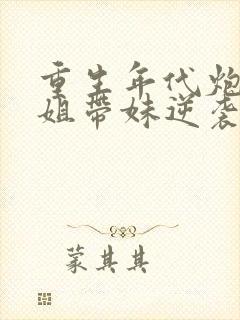 重生年代炮
姐带妹逆袭
蒙其其